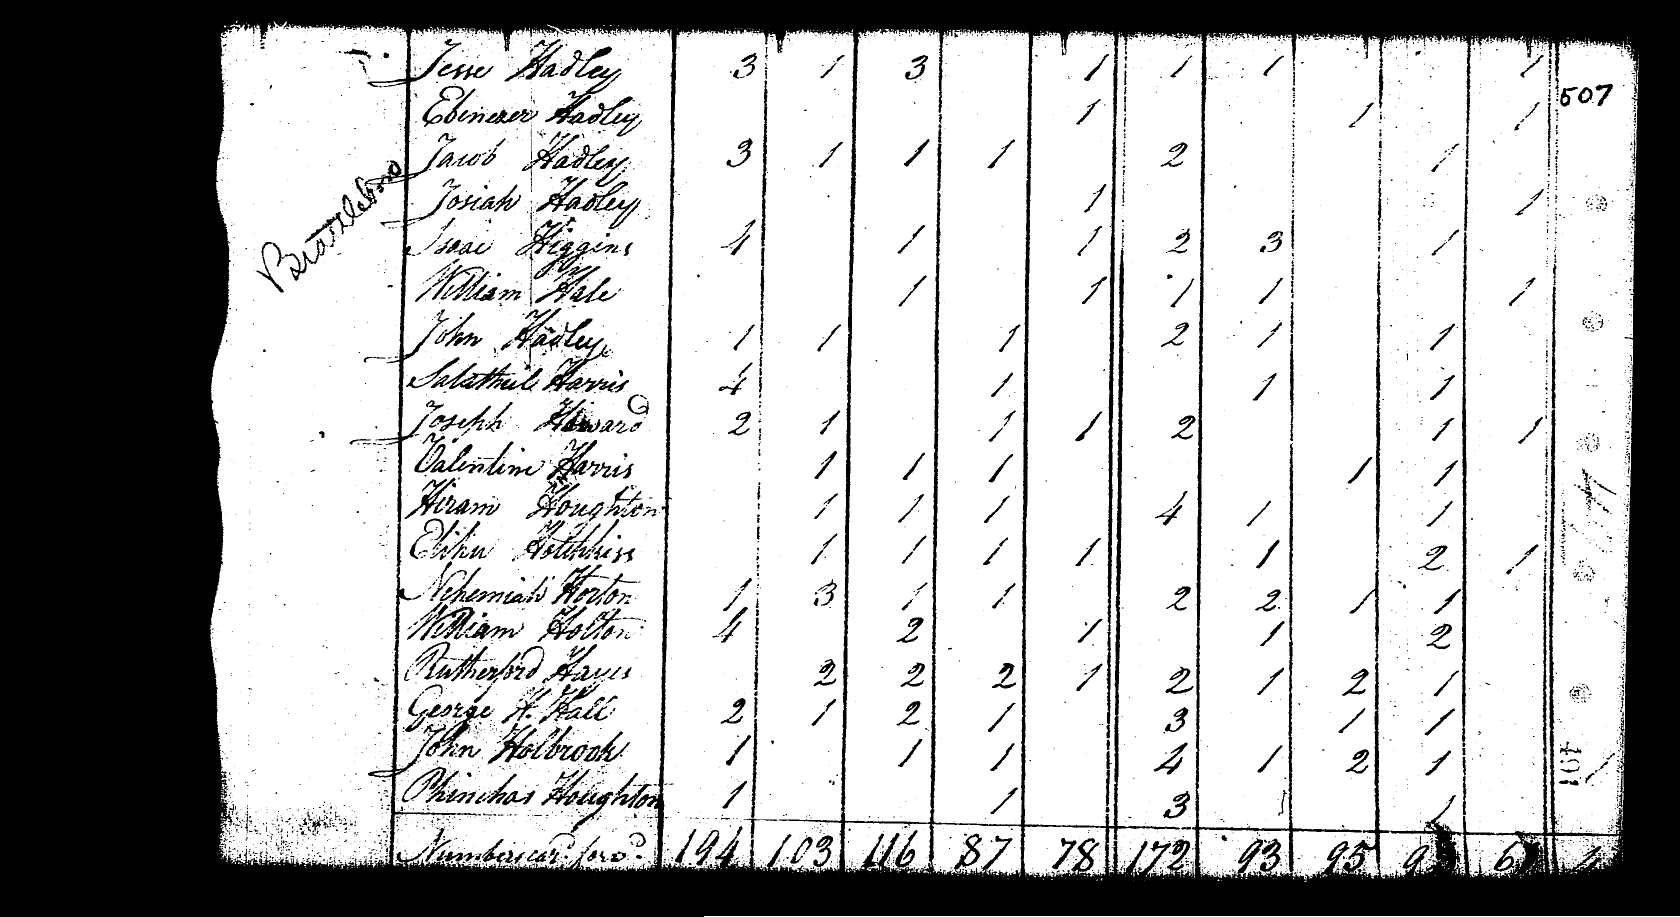 507
Brattleboro
Jesse Hadley 3 1 3 1 1 1 1
Ebenezer Hadley 1 1 1
Jacob Hadley 3 1 1 1 2 1
Josiah Hadley 1 1
Isaac Higgins 4 1 1 2 3 1
William Hale 1 1 1 1 1
John Hadley 1 1 1 2 1 1
Salathiel Harris 4 1 1 1
Joseph Howard 2 1 1 1 2 1 1
Valentine Harris 1 1 1 1 1
Hiram Houghton 1 1 1 4 1 1
Elihu Hotchkiss 1 1 1 1 1 2 1
Nehemiah Horton 1 3 1 1 2 2 1 1
William Holton 4 2 1 1 2
Rutherford Hayes 2 2 2 1 2 1 2 1
George H. Hall 2 1 2 1 3 1 1
John Holbrook 1 1 1 4 1 2 1
Phinehas Houghton 1 1 3 1 1
Numbers card forwd 194 103 116 87 78 172 93 95
491